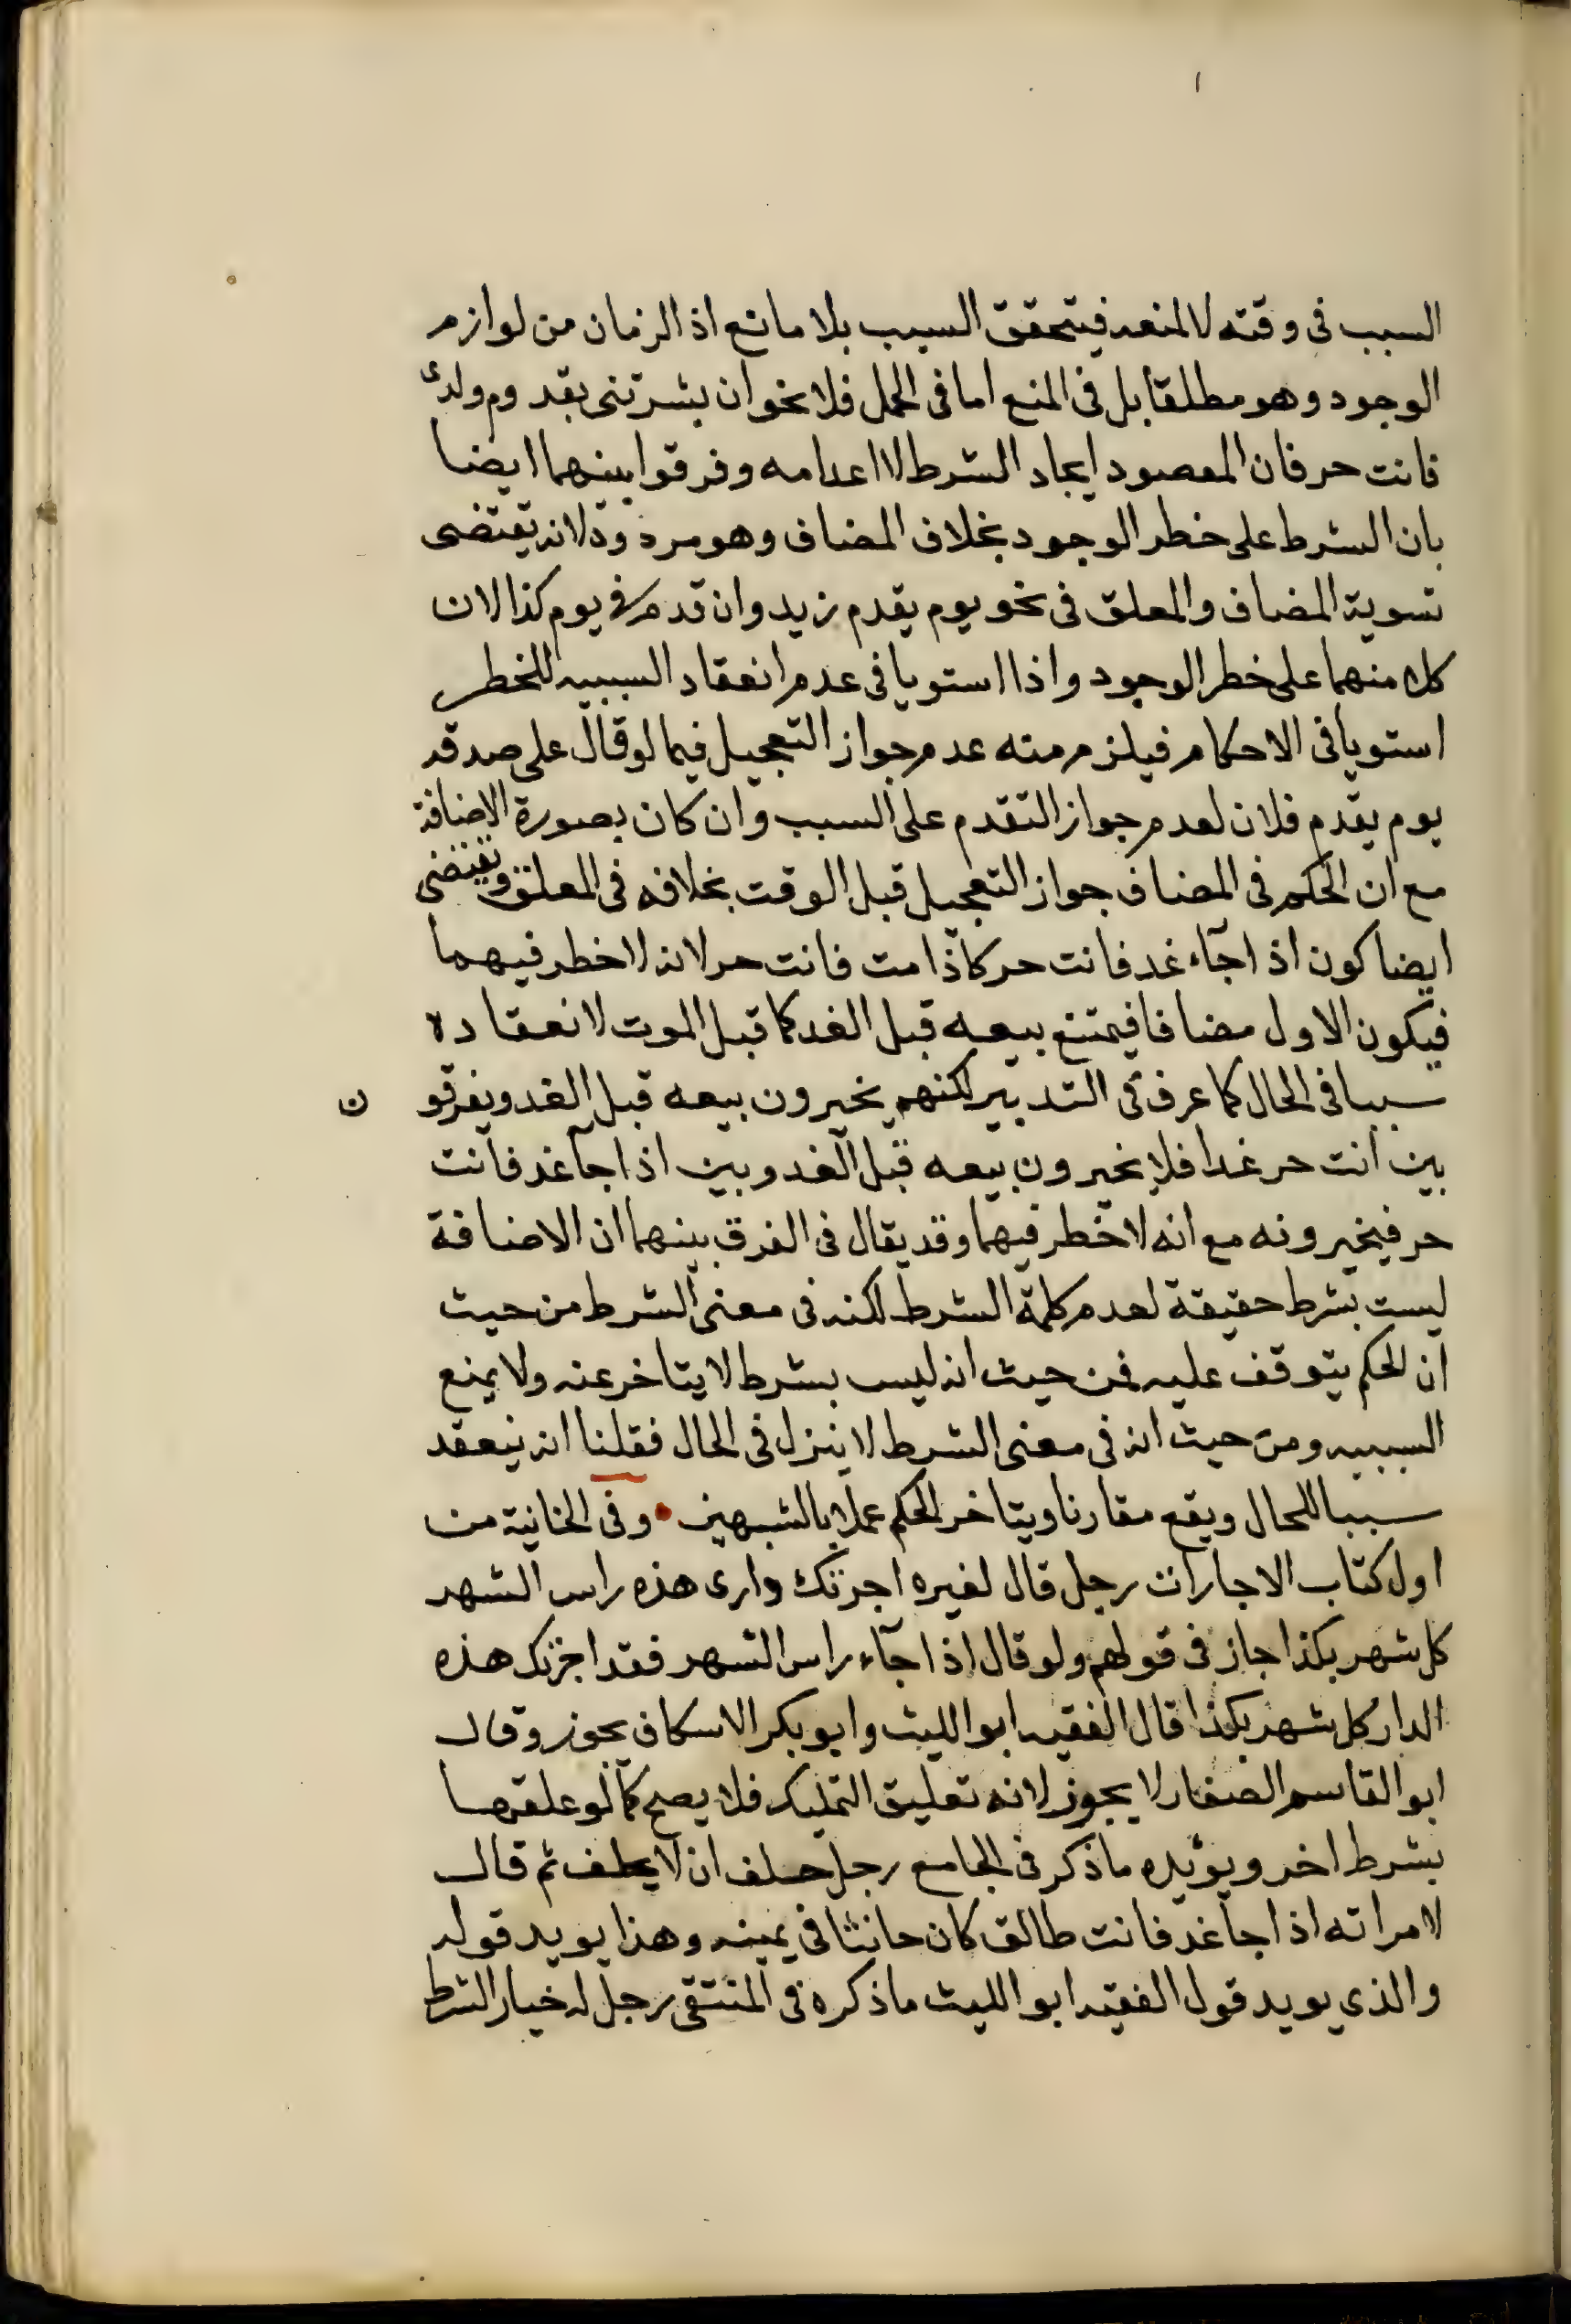 السبب فى وقته لا لمنعه فيتحقق السبب بلا مانع اذ الزمان من لوازم
الوجود وهو مطلقا بل فى المنع اما فى الحمل فلا نحو ان بشرتنى بقدوم ولدى
فانت حر فان المقصود ايجاد الشرط لا اعدامه وفرقوا بينهما ايضا
بان الشرط على خطر الوجود بخلاف المضاف وهو مردود لانه يقتضى
تسوية المضاف والمعلق فى نحو يوم يقدم زيد وان قدم فى يوم كذا لان
كلا منهما على خطر الوجود واذا استويا فى عدم انعقاد السببيه للخطر
استويا فى الاحكام فيلزم منه عدم جواز التعجيل فيما لو قال على صدقه
يوم يقدم فلان لعدم جواز التقدم على السبب وان كان بصورة الاضافة
مع ان الحكم فى المضاف جواز التعجيل قبل الوقت بخلافه فى المعلق ويقتضى
ايضا كون اذا جآء غد فانت حر كاذا مت فانت حر لانه لا خطر فيهما
فيكون الاول مضافا فيمتنع بيعه قبل الغد كما قبل الموت لانعقاده
سببا فى الحال كما عرف فى التدبير لكنهم يخيرون بيعه قبل الغد ويفرقو ن
بين انت حر غدا فلا يخيرون بيعه قبل الغد وبين اذا جآ غد فانت
حر فيخيرونه مع انه لا خطر فيهما وقد يقال فى الفرق بينهما ان الاضافة
ليست بشرط حقيقة لعدم كلمة الشرط لكنه فى معنى الشرط من حيث
ان الحكم يتوقف عليه فمن حيث انه ليس بشرط لا يتاخر عنه ولا يمنع
السببيه ومن حيث انه فى معنى الشرط لا ينزل فى الحال فقلنا انه ينعقد
سببا للحال ويقع مقارنا ويتاخر الحكم عملا بالشبهين • وفى الخانية من
اول كتاب الاجارات رجل قال لغيره اجرتك دارى هذه راس الشهر
كل شهر بكذا جاز فى قولهم ولو قال اذا جآء راس الشهر فقد اجرتك هذه
الدار كل شهر بكذا قال الفقيه ابو الليث وابو بكر الاسكاف يجوز وقال
ابو القاسم الصفار لا يجوز لانه تعليق التمليك فلا يصح كما لو علقها
بشرط اخر ويؤيده ما ذكر فى الجامع رجل حلف ان لا يحلف ثم قال
لامراته اذا جآ غد فانت طالق كان حانثا فى يمينه وهذا يويد قوله
والذي يويد قول الفقيه ابو الليث ما ذكره فى المنتقى رجل له خيار الشرط